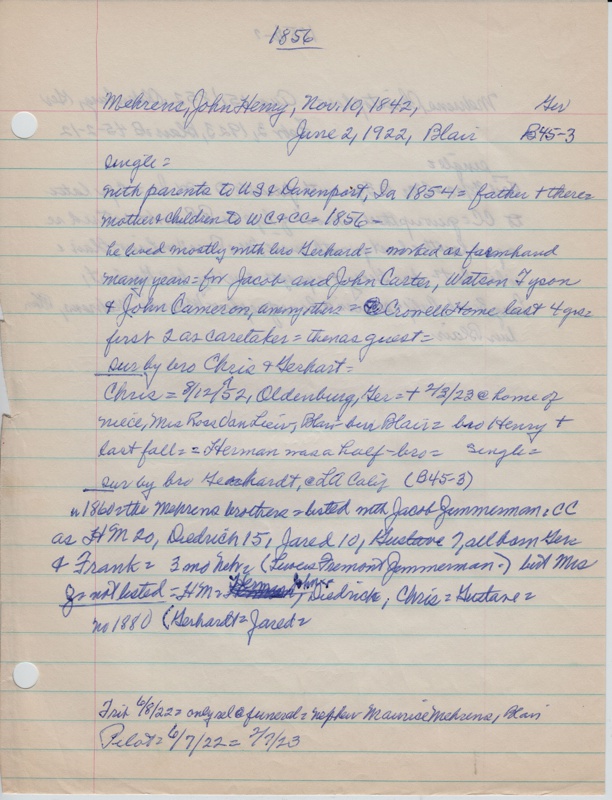 1856
Mehrens, John Henry, Nov. 10, 1842, Ger
June 2, 1922, Blair B45-3
single =
with parents to US & Davenport, Ia 1854 = father + there =
mother & children to WC & CC = 1856 -
he lived mostly with bro Gerhard = worked as farmhand
many years = for Jacob and John Carter, Watson Tyson
& John Cameron, among others = @ Crowell Home last 4 yrs =
first 2 as caretaker = then as guest =
sur by bro Chris & Gerhart =
Chris = 8/12/52, Oldenburg, Ger = + 2/3/23 @ home of
niece, Mrs Rosa Van Liew, Blair bur Blair = bro Henry +
last fall = = Herman was a half-bro = single =
sur by bro Gerhardt, @ LA Calif (B45-3)
1860 = the Mehrens brothers = listed with Jacob Zimmerman, CC
as H M 20, Diedrich 15, Jared 10, Gustave 7, all born Ger
& Frank = 3 mo Nebr, (Lewis Fremont Zimmerman -) but Mrs
Z = not listed = HM = John, Diedrick, Chris = Gustave =
no 1880 (Gerhardt = Jared =
Trib 6/8/22 = only rel @ funeral = nephew Maurice Mehrens, Blair
Pilot = 6/7/22 = 2/7/23